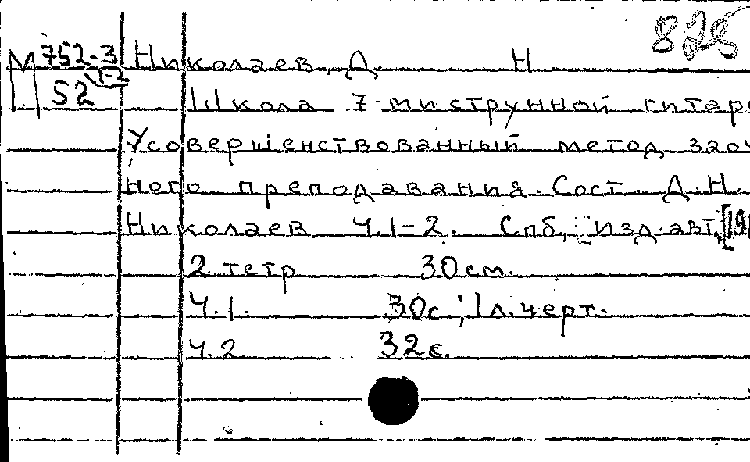 828
М 752-3 Николаев, Д. Н
52 1-2 Школа 7-миструнной гитар
Усовершенствованный метод заоч
ного преподавания. Сост. Д.Н.
Николаев Ч.1-2. Спб, изд. авт, [19
2 тетр 30см.
Ч.1. 30с.; 1л. черт.
Ч.2 32с.